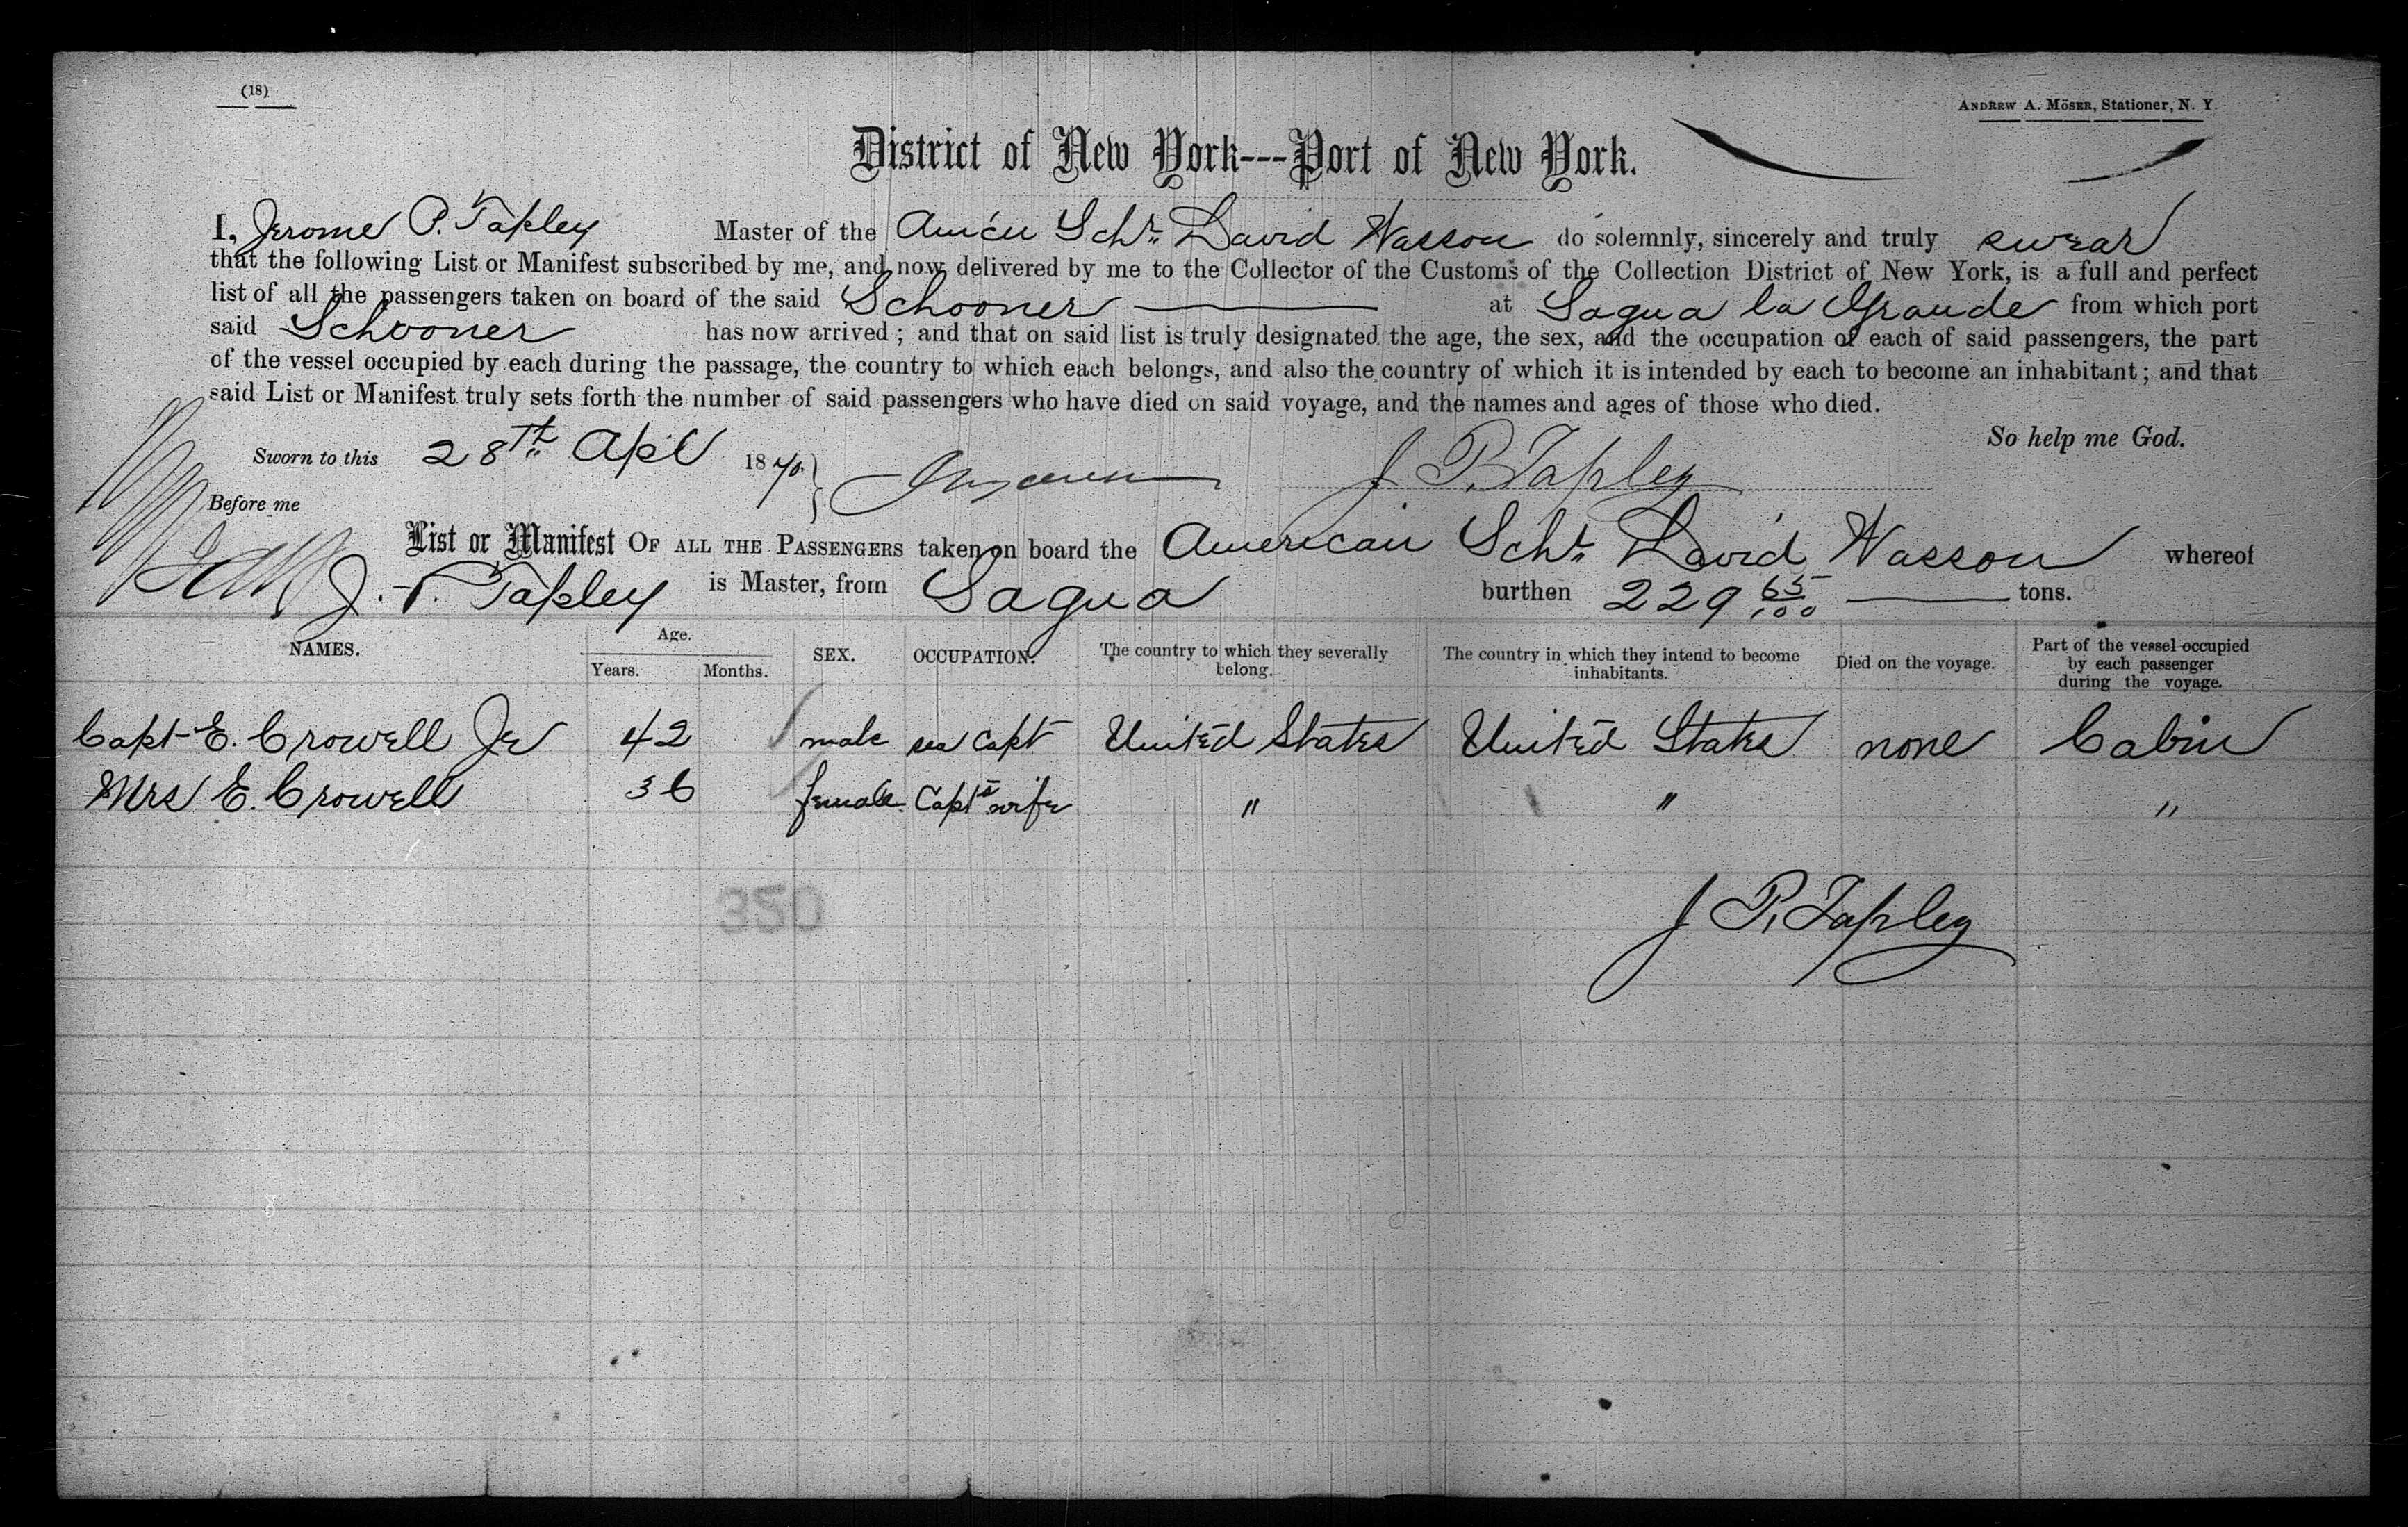 (18)
ANDREW A. MÖSER, Stationer, N. Y.
District of New York---Port of New York.
I, Jerome P. Tapley Master of the Amcn Schr. David Wasson do solemnly, sincerely and truly swear
that the following List or Manifest subscribed by me, and now delivered by me to the Collector of the Customs of the Collection District of New York, is a full and perfect
list of all the passengers taken on board of the said Schooner at Sagua la Grande from which port
said Schooner has now arrived ; and that on said list is truly designated the age, the sex, and the occupation of each of said passengers, the part
of the vessel occupied by each during the passage, the country to which each belongs, and also the country of which it is intended by each to become an inhabitant ; and that
said List or Manifest truly sets forth the number of said passengers who have died on said voyage, and the names and ages of those who died.
So help me God.
Sworn to this 28th Apl 1870 J P. Tapley
Before me
List or Manifest OF ALL THE PASSENGERS taken on board the American Schr. David Wasson whereof
J. P. Tapley is Master, from Sagua burthen 229 65/100 tons.
NAMES. Age. Years. Months. SEX. OCCUPATION. The country to which they severally belong. The country in which they intend to become inhabitants. Died on the voyage. Part of the vessel occupied by each passenger during the voyage.
Capt E. Crowell Jr 42 male sea Capt United States United States none Cabin
Mrs E. Crowell 36 female Capts wife " " "
J P. Tapley
350